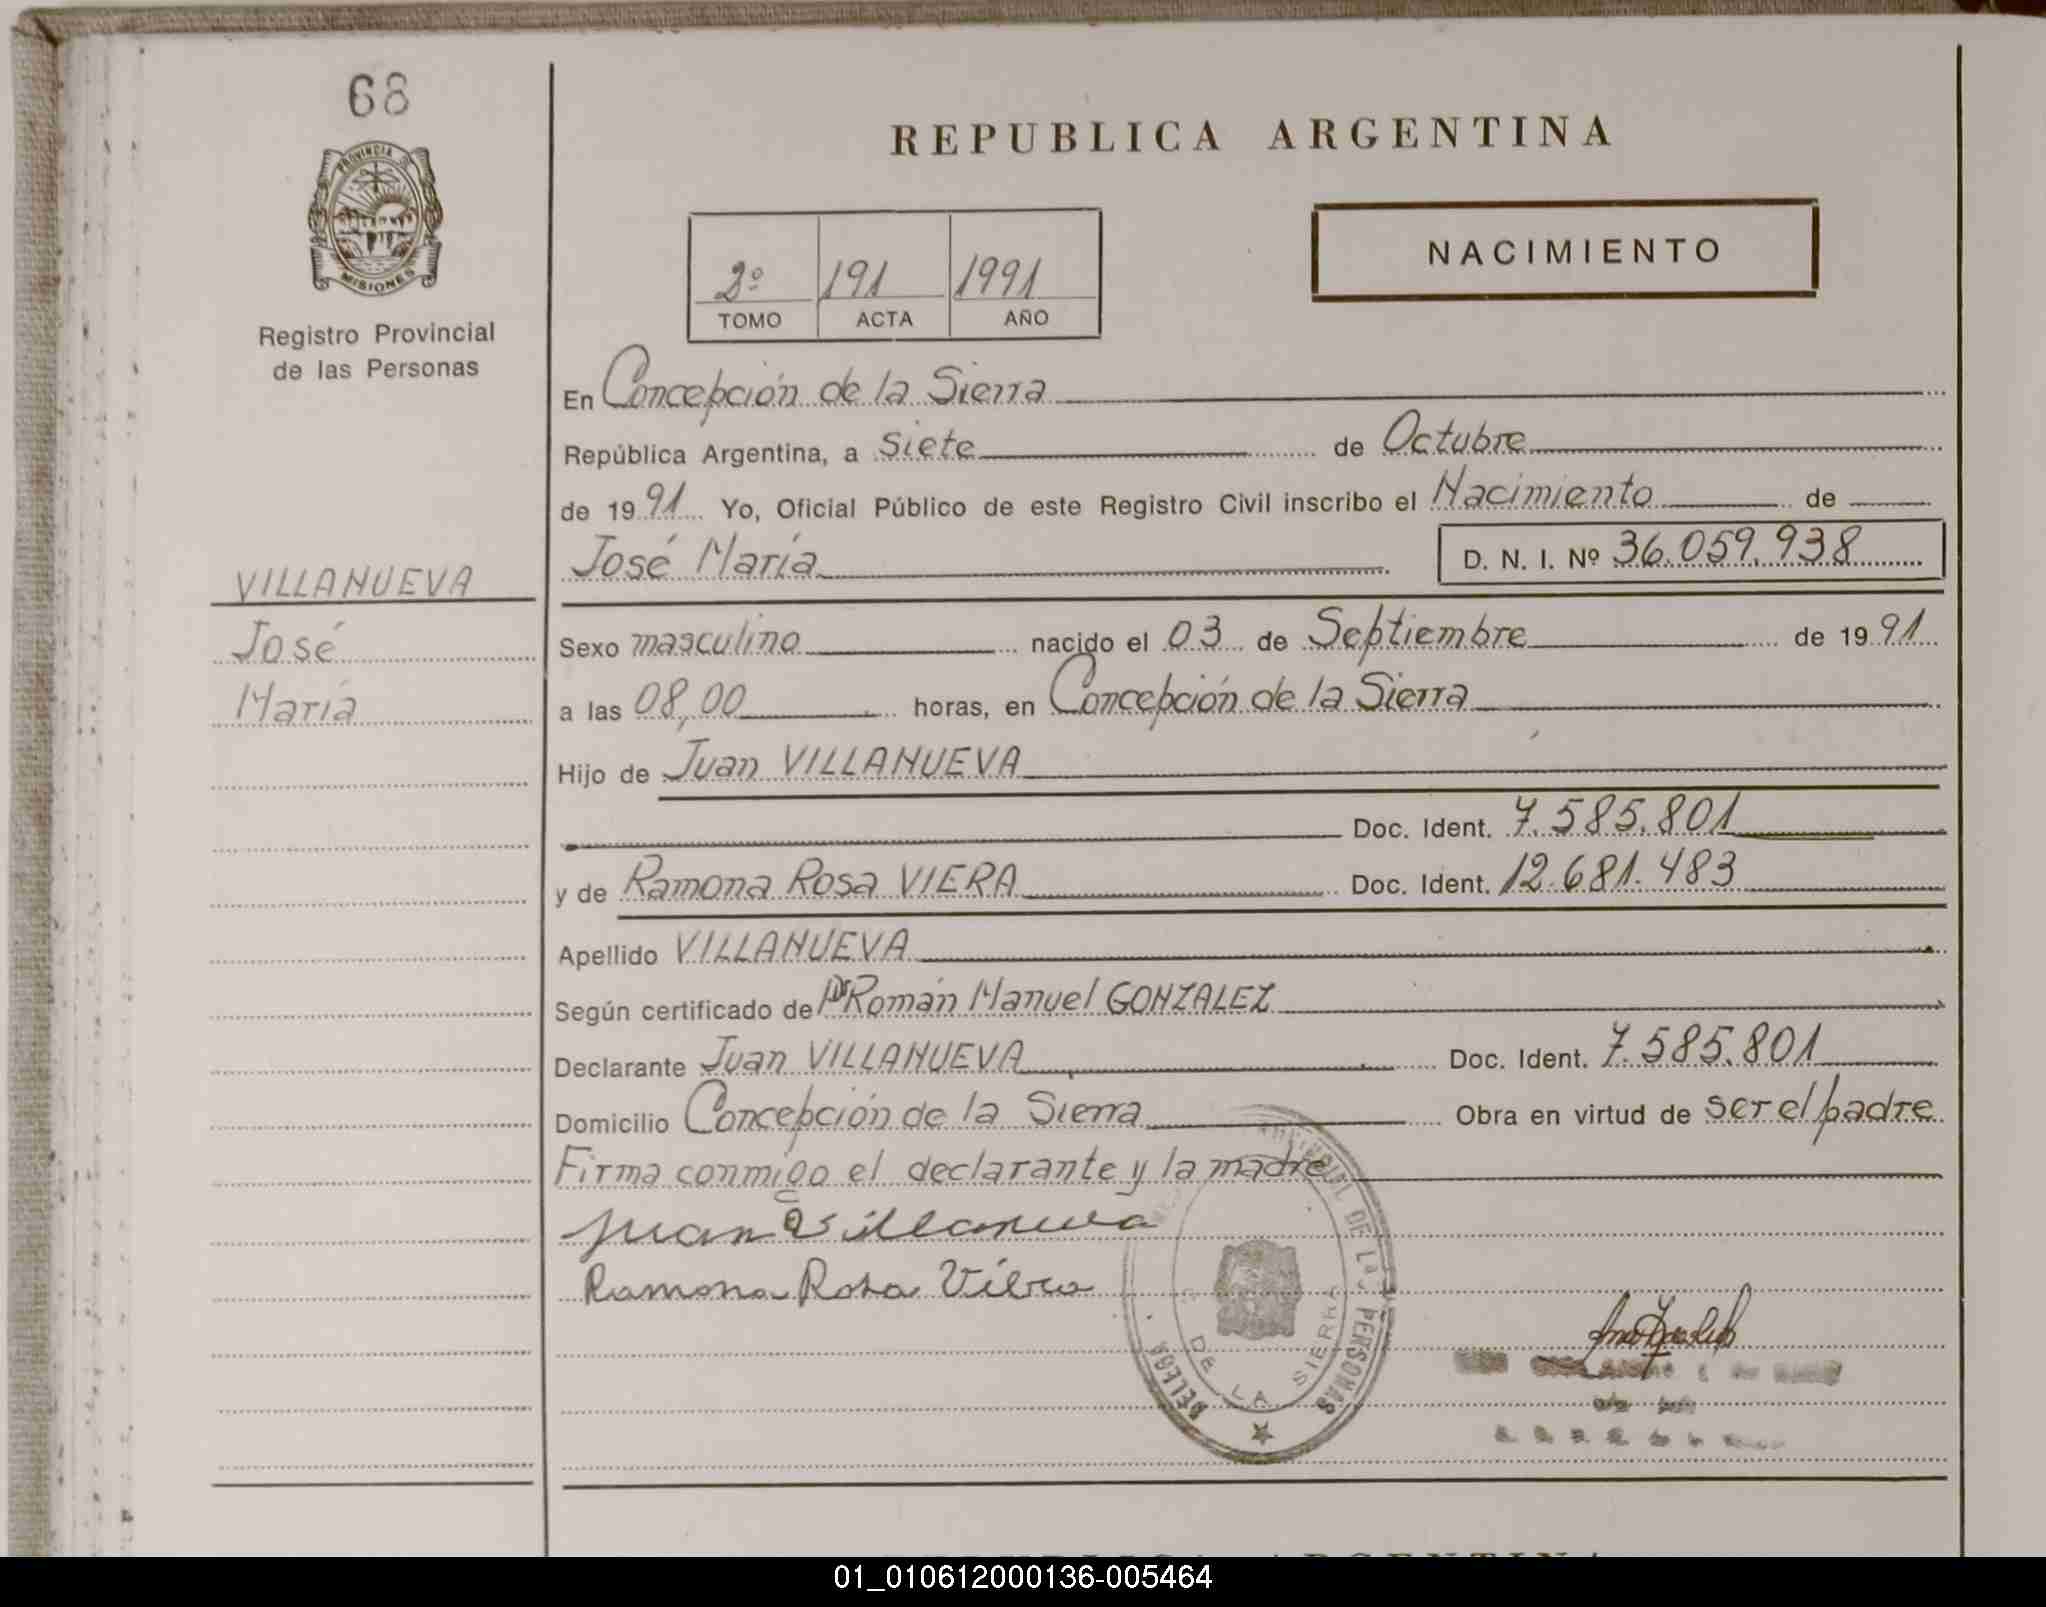 68
PROVINCIA DE
MISIONES
Registro Provincial
de las Personas
VILLANUEVA
José
María
REPUBLICA ARGENTINA
NACIMIENTO
2º 191 1991
TOMO ACTA AÑO
En Concepción de la Sierra
República Argentina, a Siete de Octubre
de 1991 Yo, Oficial Público de este Registro Civil inscribo el Nacimiento de
José María D. N. I. Nº 36.059.938
Sexo masculino nacido el 03 de Septiembre de 1991
a las 08,00 horas, en Concepción de la Sierra
Hijo de Juan VILLANUEVA
Doc. Ident. 7.585.801
y de Ramona Rosa VIERA Doc. Ident. 12.681.483
Apellido VILLANUEVA
Según certificado de Dr Román Manuel GONZALEZ
Declarante Juan VILLANUEVA Doc. Ident. 7.585.801
Domicilio Concepción de la Sierra Obra en virtud de ser el padre
Firma conmigo el declarante y la madre
Juan Villanueva
Ramona Rosa Viera
DE LAS PERSONAS
DE LA SIERRA
01_010612000136-005464